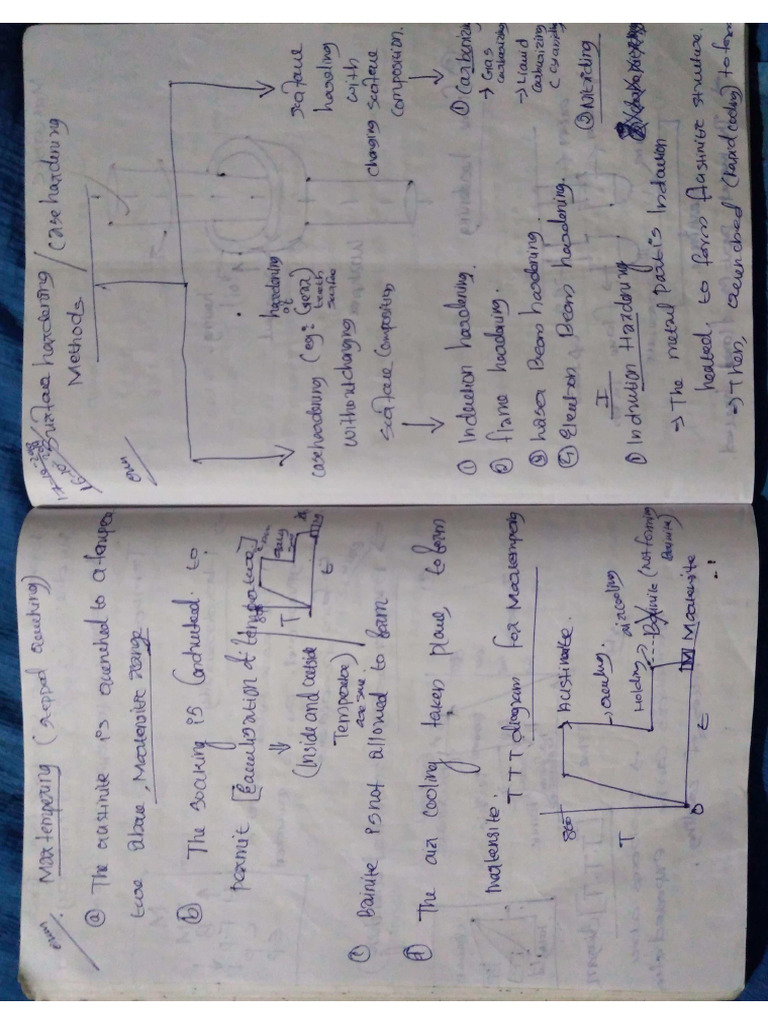 Martempering (stepped quenching)
(a) The austinite is quenched to a tempera
ture above, Martensitic Range
(b) The soaking is conducted to
permit [Equalization of temperature]
(Inside and outside
Temperature)
are same
(c) Bainite is not allowed to form
(d) The air cooling taken place, to form
Martensite.
TTT diagram for Martempering
800
T
Austinite.
Holding
air cooling
Bainite (not forming
Bainite)
M Martensite
0
t
Surface hardening / Case hardening
Methods.
Case hardening (eg: hardening
of
Gear
teeth
Surface)
without changing
surface composition
Surface
harding
with
changing surface
composition.
① Induction hardening.
② flame hardening.
③ Laser Beam hardening.
④ Electron Beam hardening.
① Carbonizing
→ Gas
carburizing
→ Liquid
carburizing
( cyaniding
② Nitriding
① Induction Hardening
⇒ The metal part is Induction
heated to form Austinite structure.
⇒ Then, quenched (Rapid cooling) to form